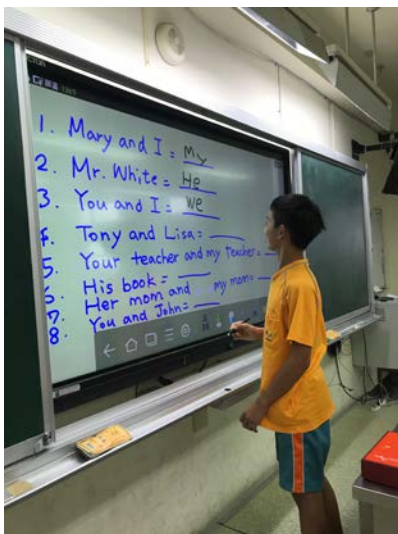 1. Mary and I = My
2. Mr. White = He
3. You and I = We
4. Tony and Lisa = ____
5. Your teacher and my teacher = __
6. His book = ____
7. Her mom and my mom = __
8. You and John = ____